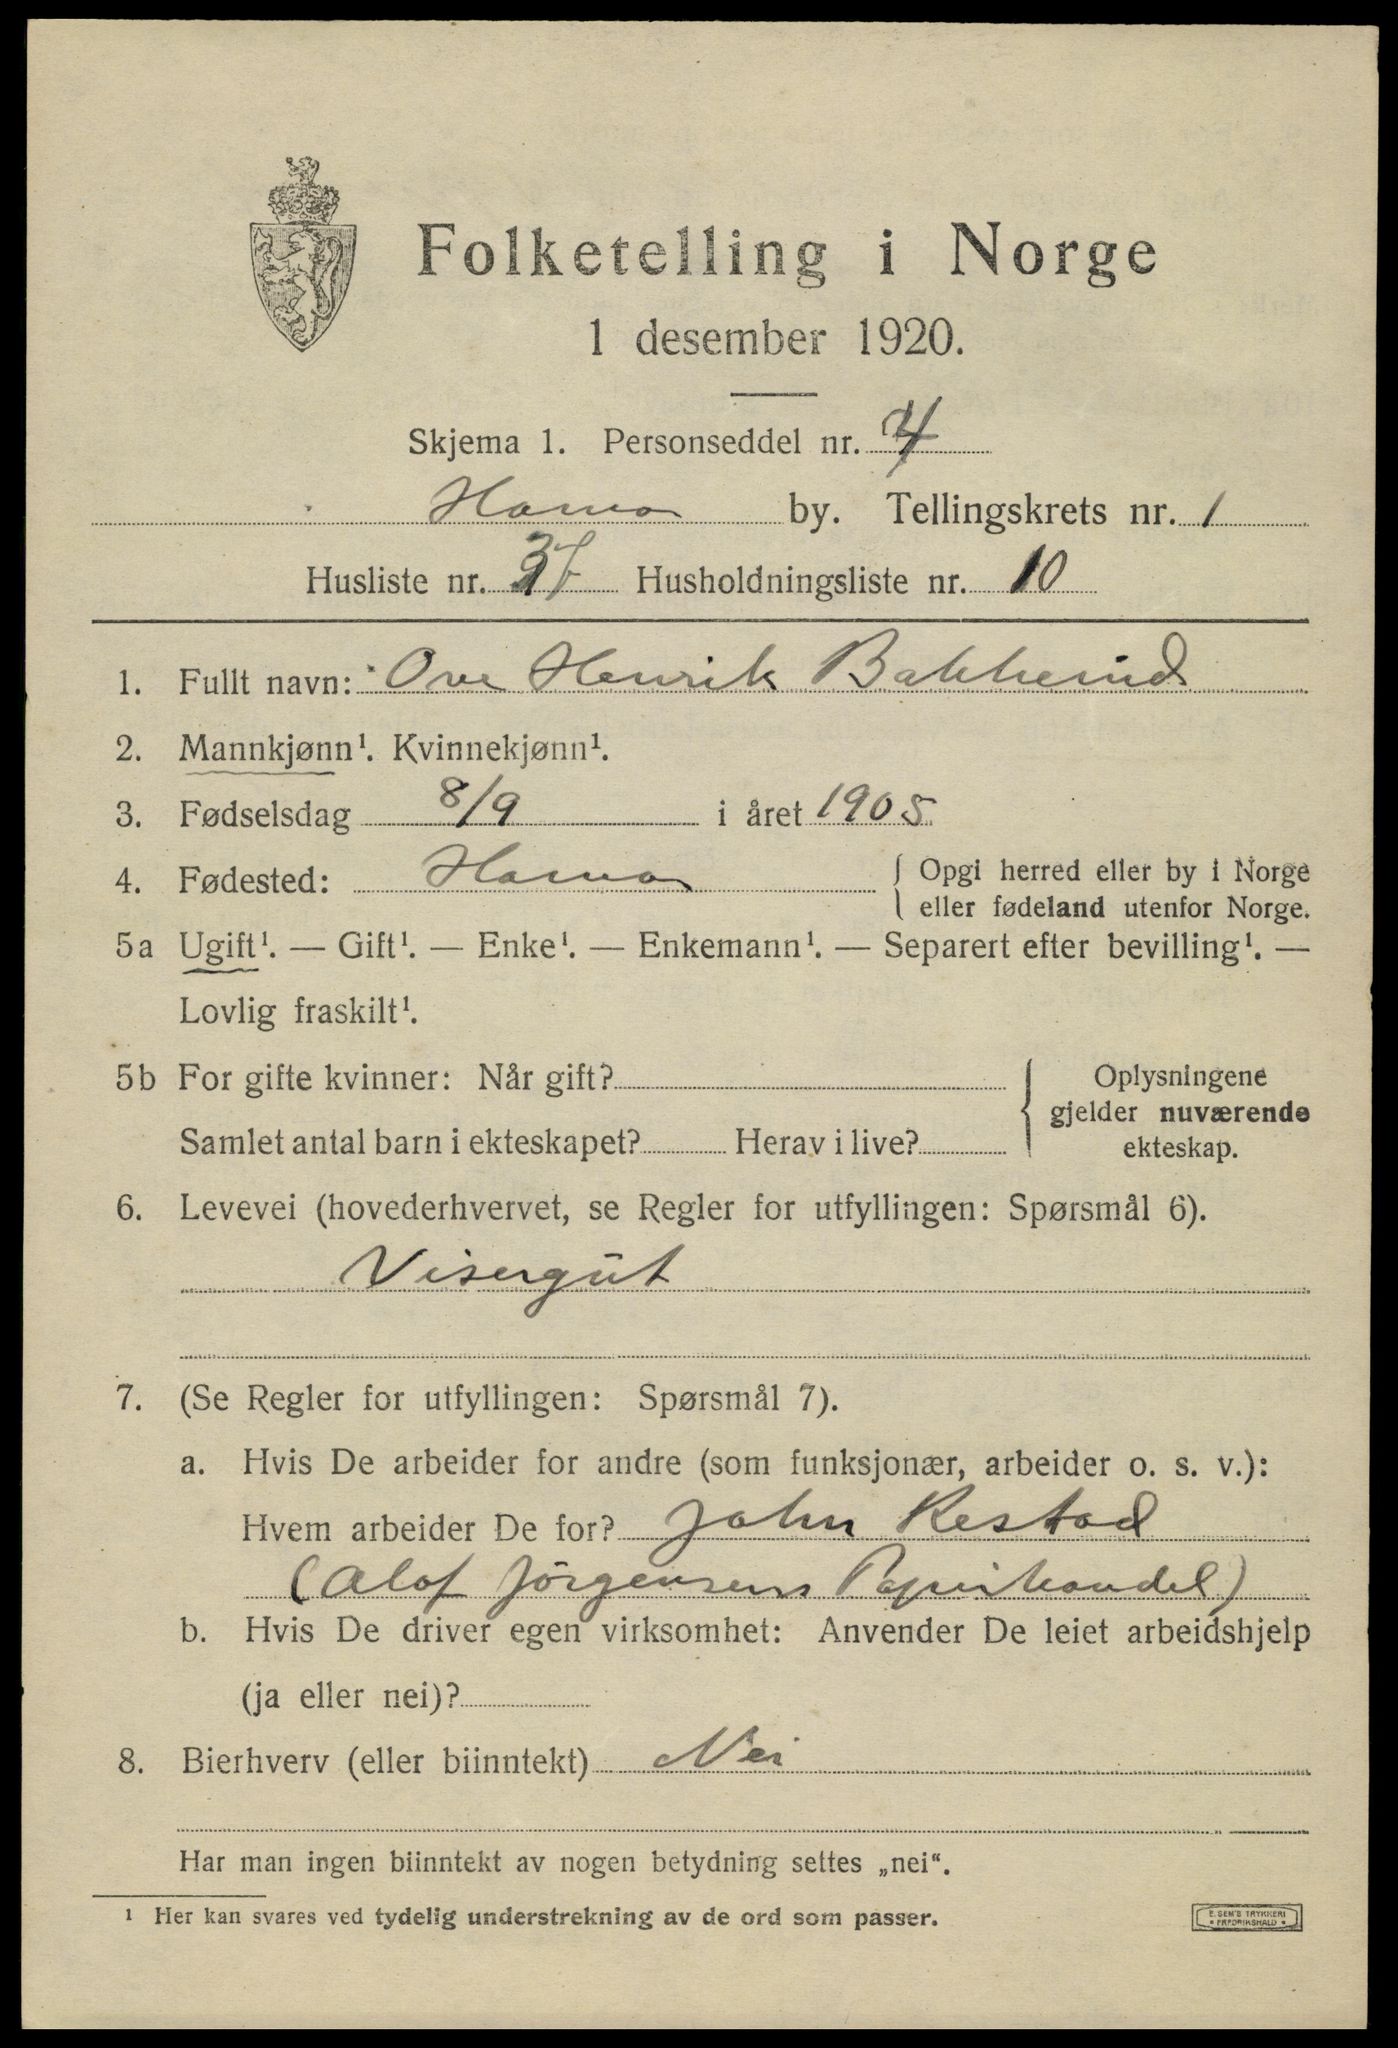 Folketelling i Norge
1 desember 1920.
Skjema 1. Personseddel nr. 4
Hamar by. Tellingskrets nr. 1
Husliste nr. 37 Husholdningsliste nr. 10
1. Fullt navn: Ove Henrik Bakkerud
2. Mannkjønn¹. Kvinnekjønn¹.
3. Fødselsdag 8/9 i året 1905
4. Fødested: Hamar { Opgi herred eller by i Norge
eller fødeland utenfor Norge.
5a Ugift¹. — Gift¹. — Enke¹. — Enkemann¹. — Separert efter bevilling¹. —
Lovlig fraskilt¹.
5b For gifte kvinner: Når gift? { Oplysningene
gjelder nuværende
Samlet antal barn i ekteskapet? Herav i live? ekteskap.
6. Levevei (hovederhvervet, se Regler for utfyllingen: Spørsmål 6).
Visergut
7. (Se Regler for utfyllingen: Spørsmål 7).
a. Hvis De arbeider for andre (som funksjonær, arbeider o. s. v.):
Hvem arbeider De for? John Restad
(Olof Jörgensens Papirhandel)
b. Hvis De driver egen virksomhet: Anvender De leiet arbeidshjelp
(ja eller nei)?
8. Bierhverv (eller biinntekt) Nei
Har man ingen biinntekt av nogen betydning settes „nei“.
¹ Her kan svares ved tydelig understrekning av de ord som passer.
E. SEM'S TRYKKERI
• FREDRIKSHALD •